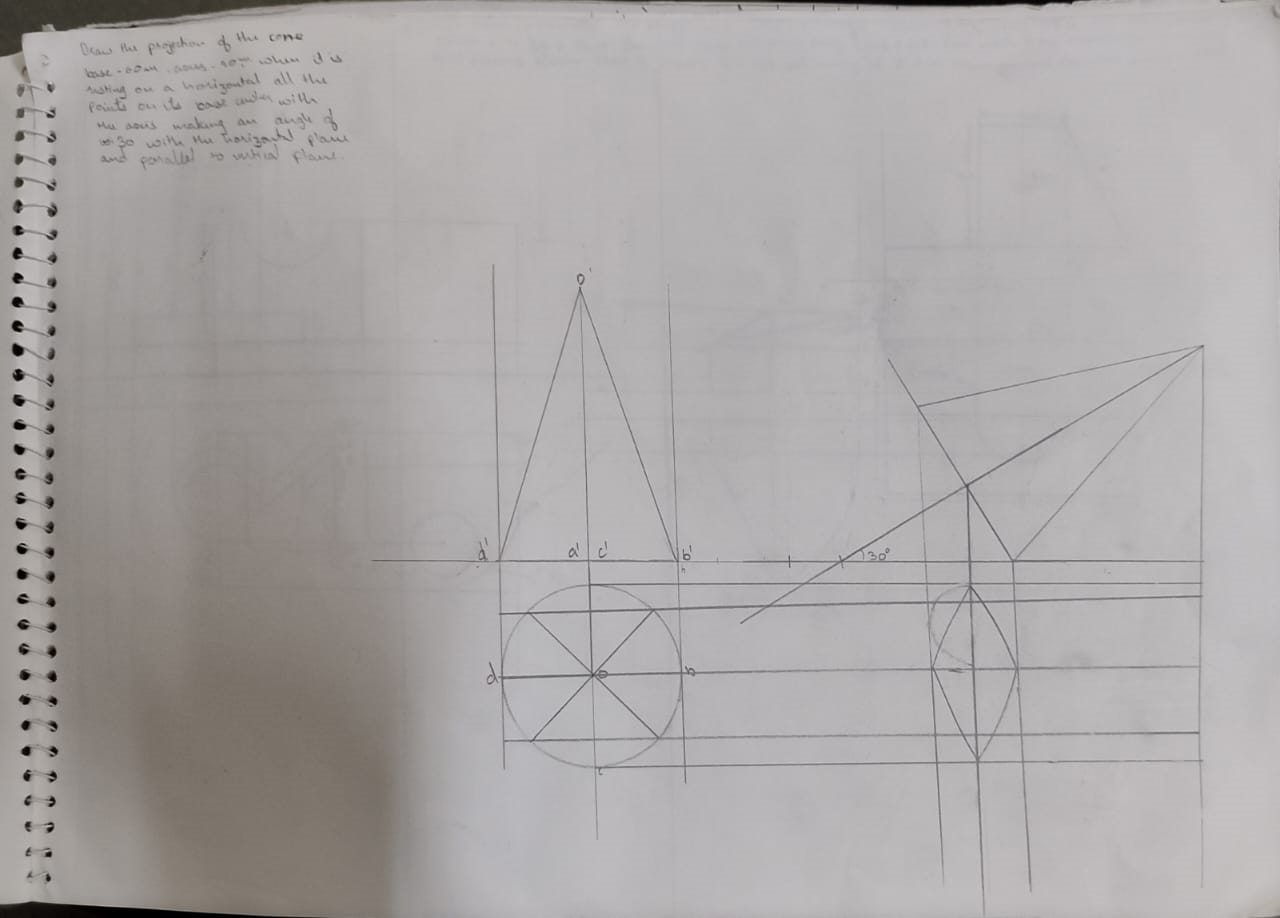 Draw the projection of the cone
base - 60m . axis - 90mm when it is
resting on a horizontal all the
points on its base with
the axis making an angle of
30 with the horizontal plane
and parallel to vertical plane.
o'
d' a' c' b'
30°
d o b
c